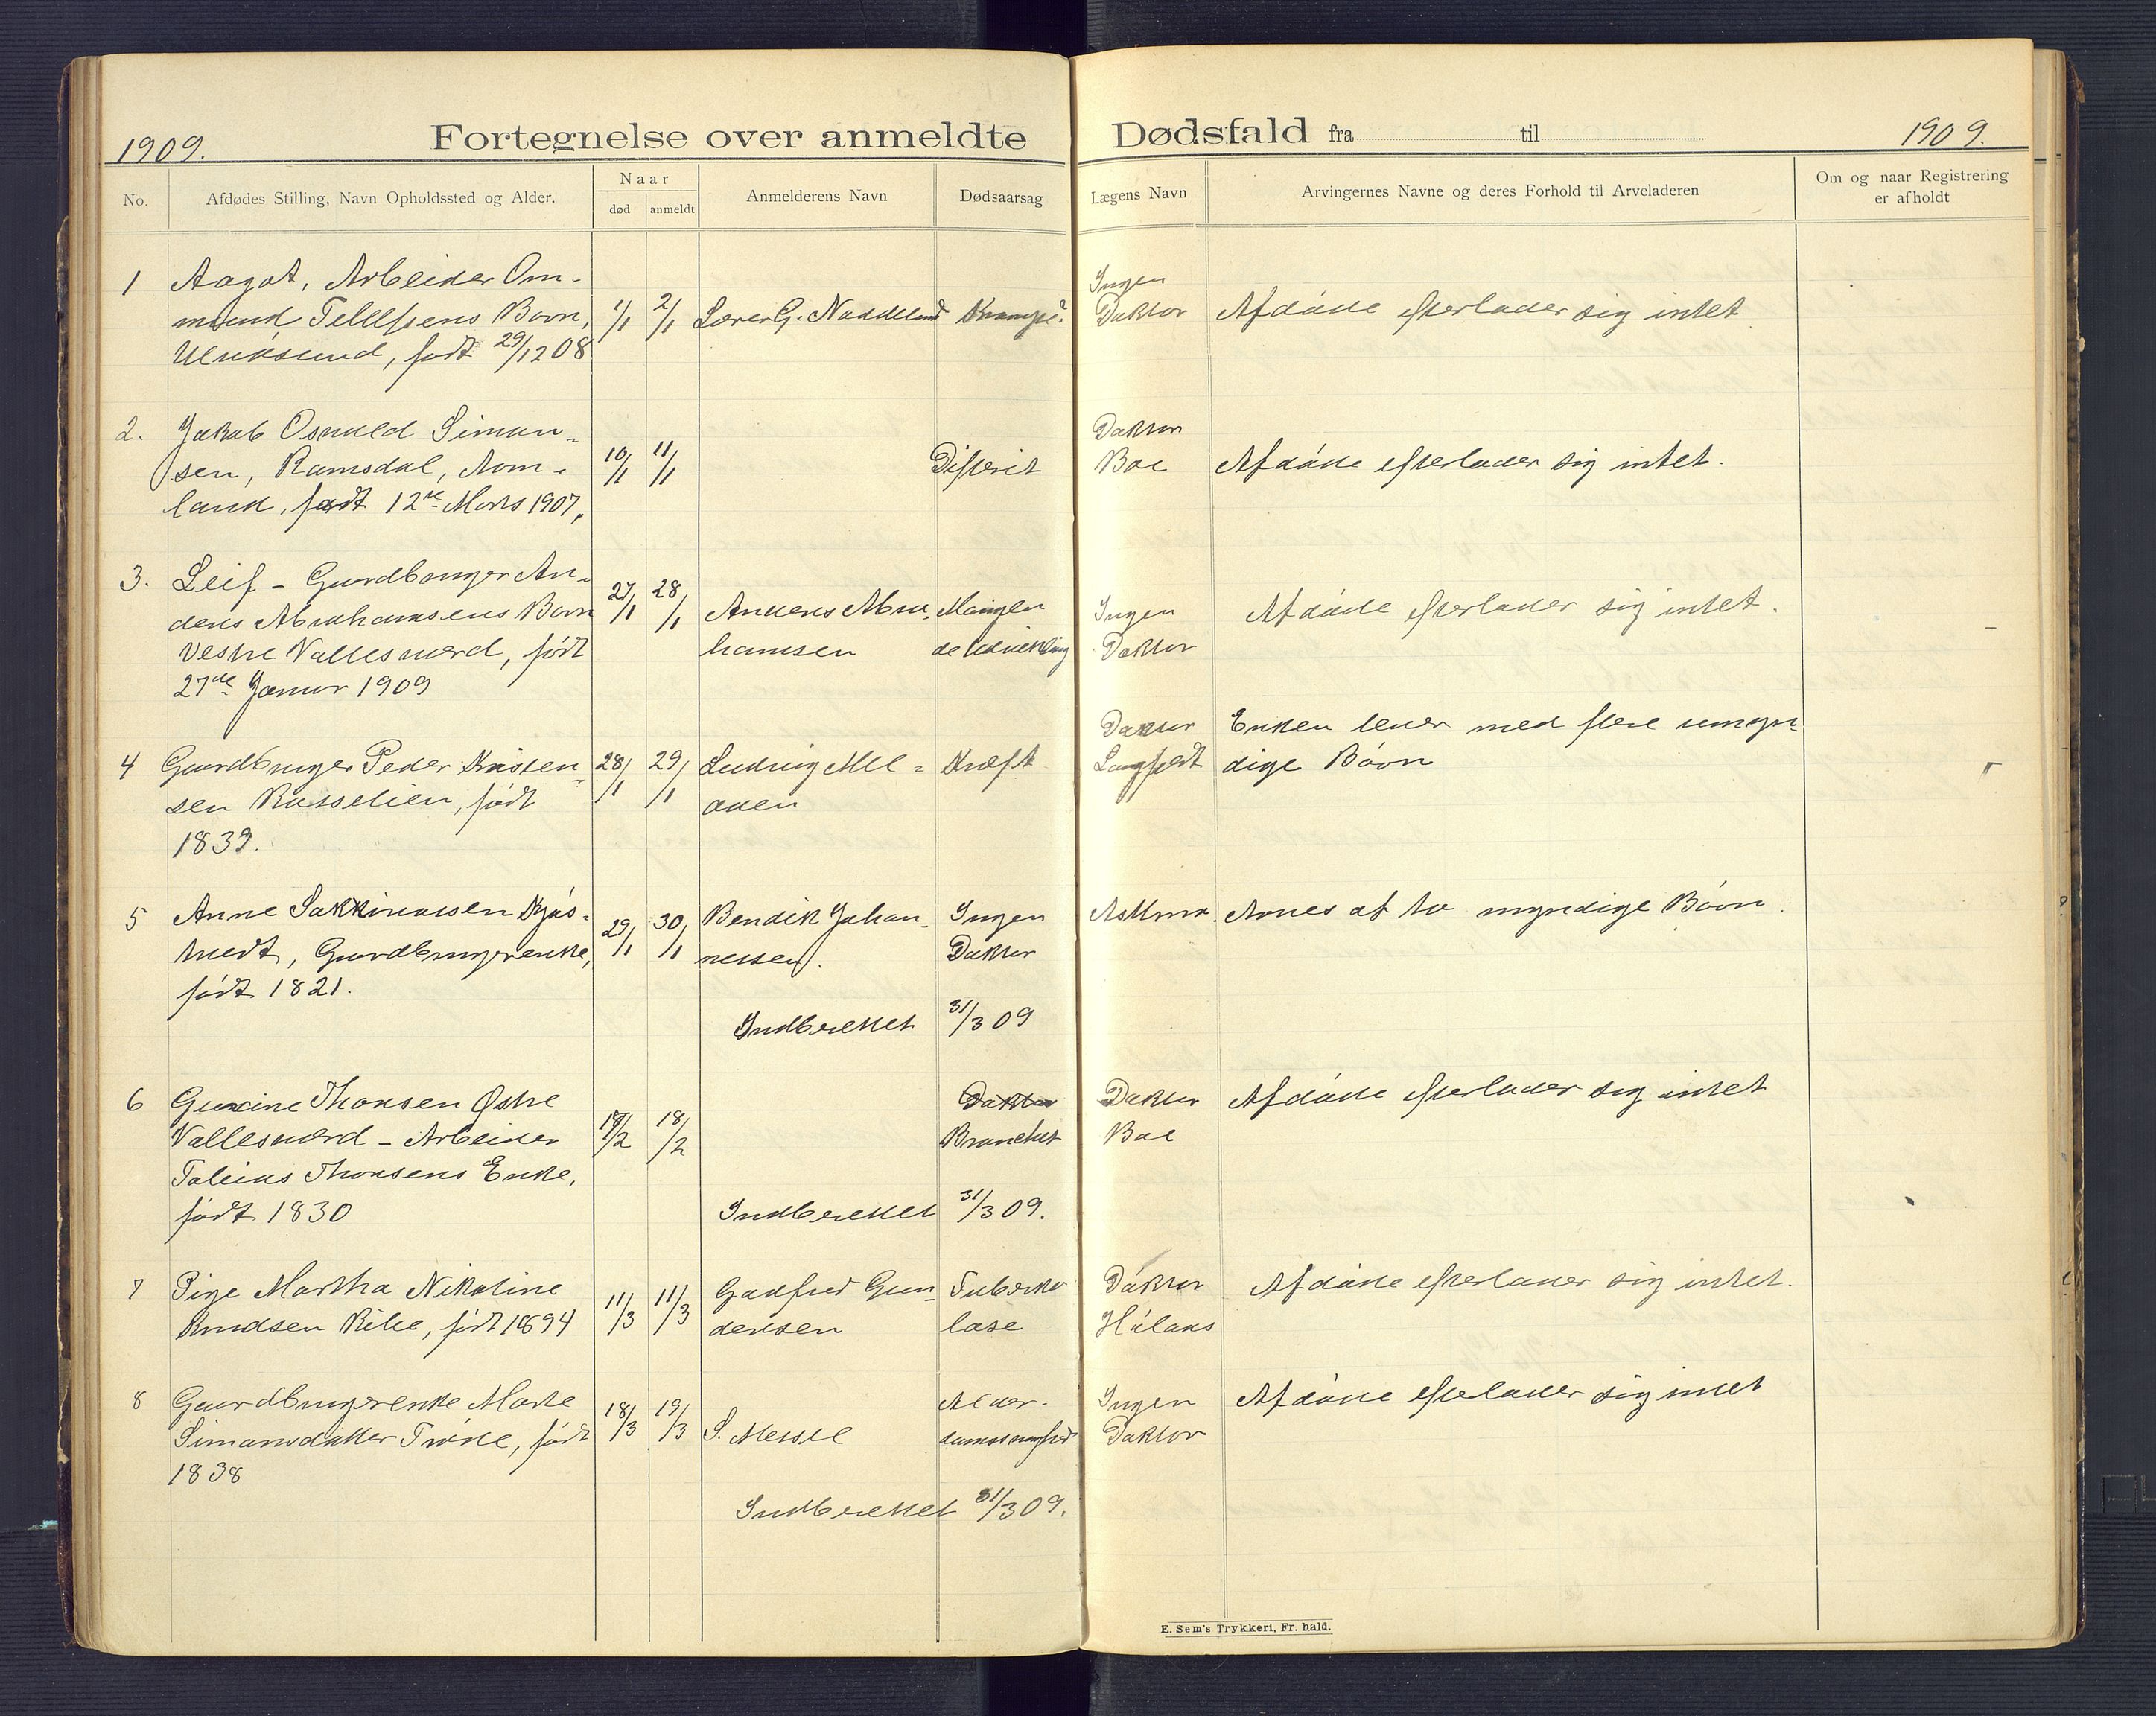 1909.
Fortegnelse over anmeldte
Dødsfald fra til
1909.
No.
Afdødes Stilling, Navn Opholdssted og Alder.
Naar
død
anmeldt
Anmelderens Navn
Dødsaarsag
Lægens Navn
Arvingernes Navne og deres Forhold til Arveladeren
Om og naar Registrering
er afholdt
1 Aagot, Arbeider Om-
mund Tellefsens Barn,
Ulriksund, født 29/12 08
1/1 2/1 Lærer G. Naddelund Krampe?
Ingen
Doktor
Afdøde efterlader sig intet
2. Jakob Osvald Simon-
sen, Ramsdal, Aom-
land, født 12te Marts 1907,
10/1 11/1
Difterit
Doktor
Boe
Afdøde efterlader sig intet.
3. Leif - Gaardbruger An-
ders Abrahamsens Barn
Vestre Vallesværd, født
27de Januar 1909
27/1 28/1
Anders Abra-
hamsen
Manglen
de Udvikling
Ingen
Doktor
Afdøde efterlader sig intet.
4 Gaardbruger Peder Kristen-
sen Rosselien, født
1839.
28/1 29/1
Ludvig
Kræft
Doktor
Langfeldt
Enken lever med flere umyn-
dige Børn
5 Anne Sakkinassen
Gaardbrugerenke,
født 1821.
29/1 30/1
Bendik Johan-
nessen.
Ingen
Doktor
Astma.
Arves af to myndige Børn.
Indberettet 31/3 09
6 Thorsen Østre
Vallesværd - Arbeider
Tobias Thorsens Enke,
født 1830
18/2
Doktor
Bronchit
Doktor
Boe
Afdøde efterlader sig intet
Indberettet 31/3 09.
7 Pige Martha Nikoline
Knudsen Ribe, født 1894
11/3 11/3
Godfred Gun-
dersen
Tuberku
lose
Doktor
Afdøde efterlader sig intet.
8 Gaardbrugerenke Marte
Simonsdatter født
1838
18/3 19/3 S. Messel
Alder-
domssvaghed
Ingen
Doktor
Afdøde efterlader sig intet
Indberettet 31/3 09.
E. Sem's Trykkeri, Fr. hald.